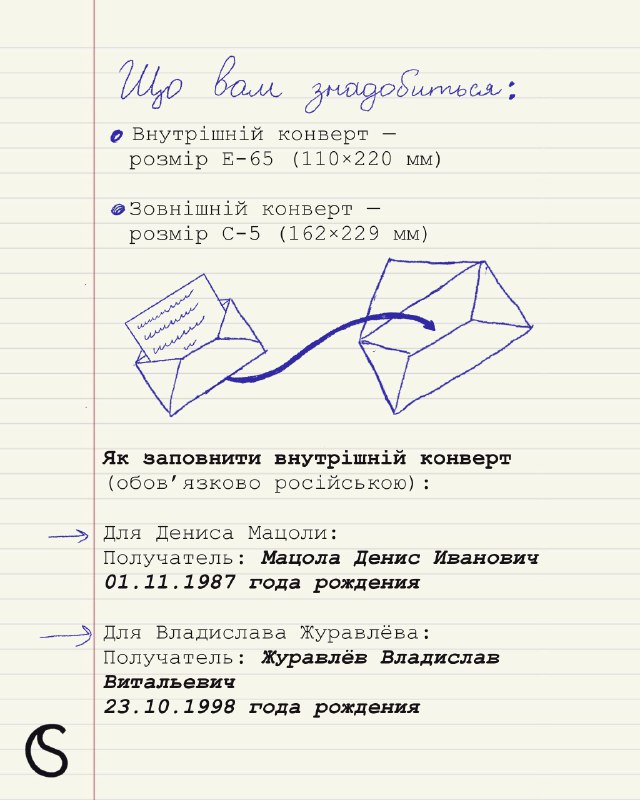 Що вам знадобиться:
Внутрішній конверт —
розмір Е-65 (110×220 мм)
Зовнішній конверт —
розмір С-5 (162×229 мм)
Як заповнити внутрішній конверт
(обов’язково російською):
Для Дениса Мацоли:
Получатель: Мацола Денис Иванович
01.11.1987 года рождения
Для Владислава Журавлёва:
Получатель: Журавлёв Владислав
Витальевич
23.10.1998 года рождения